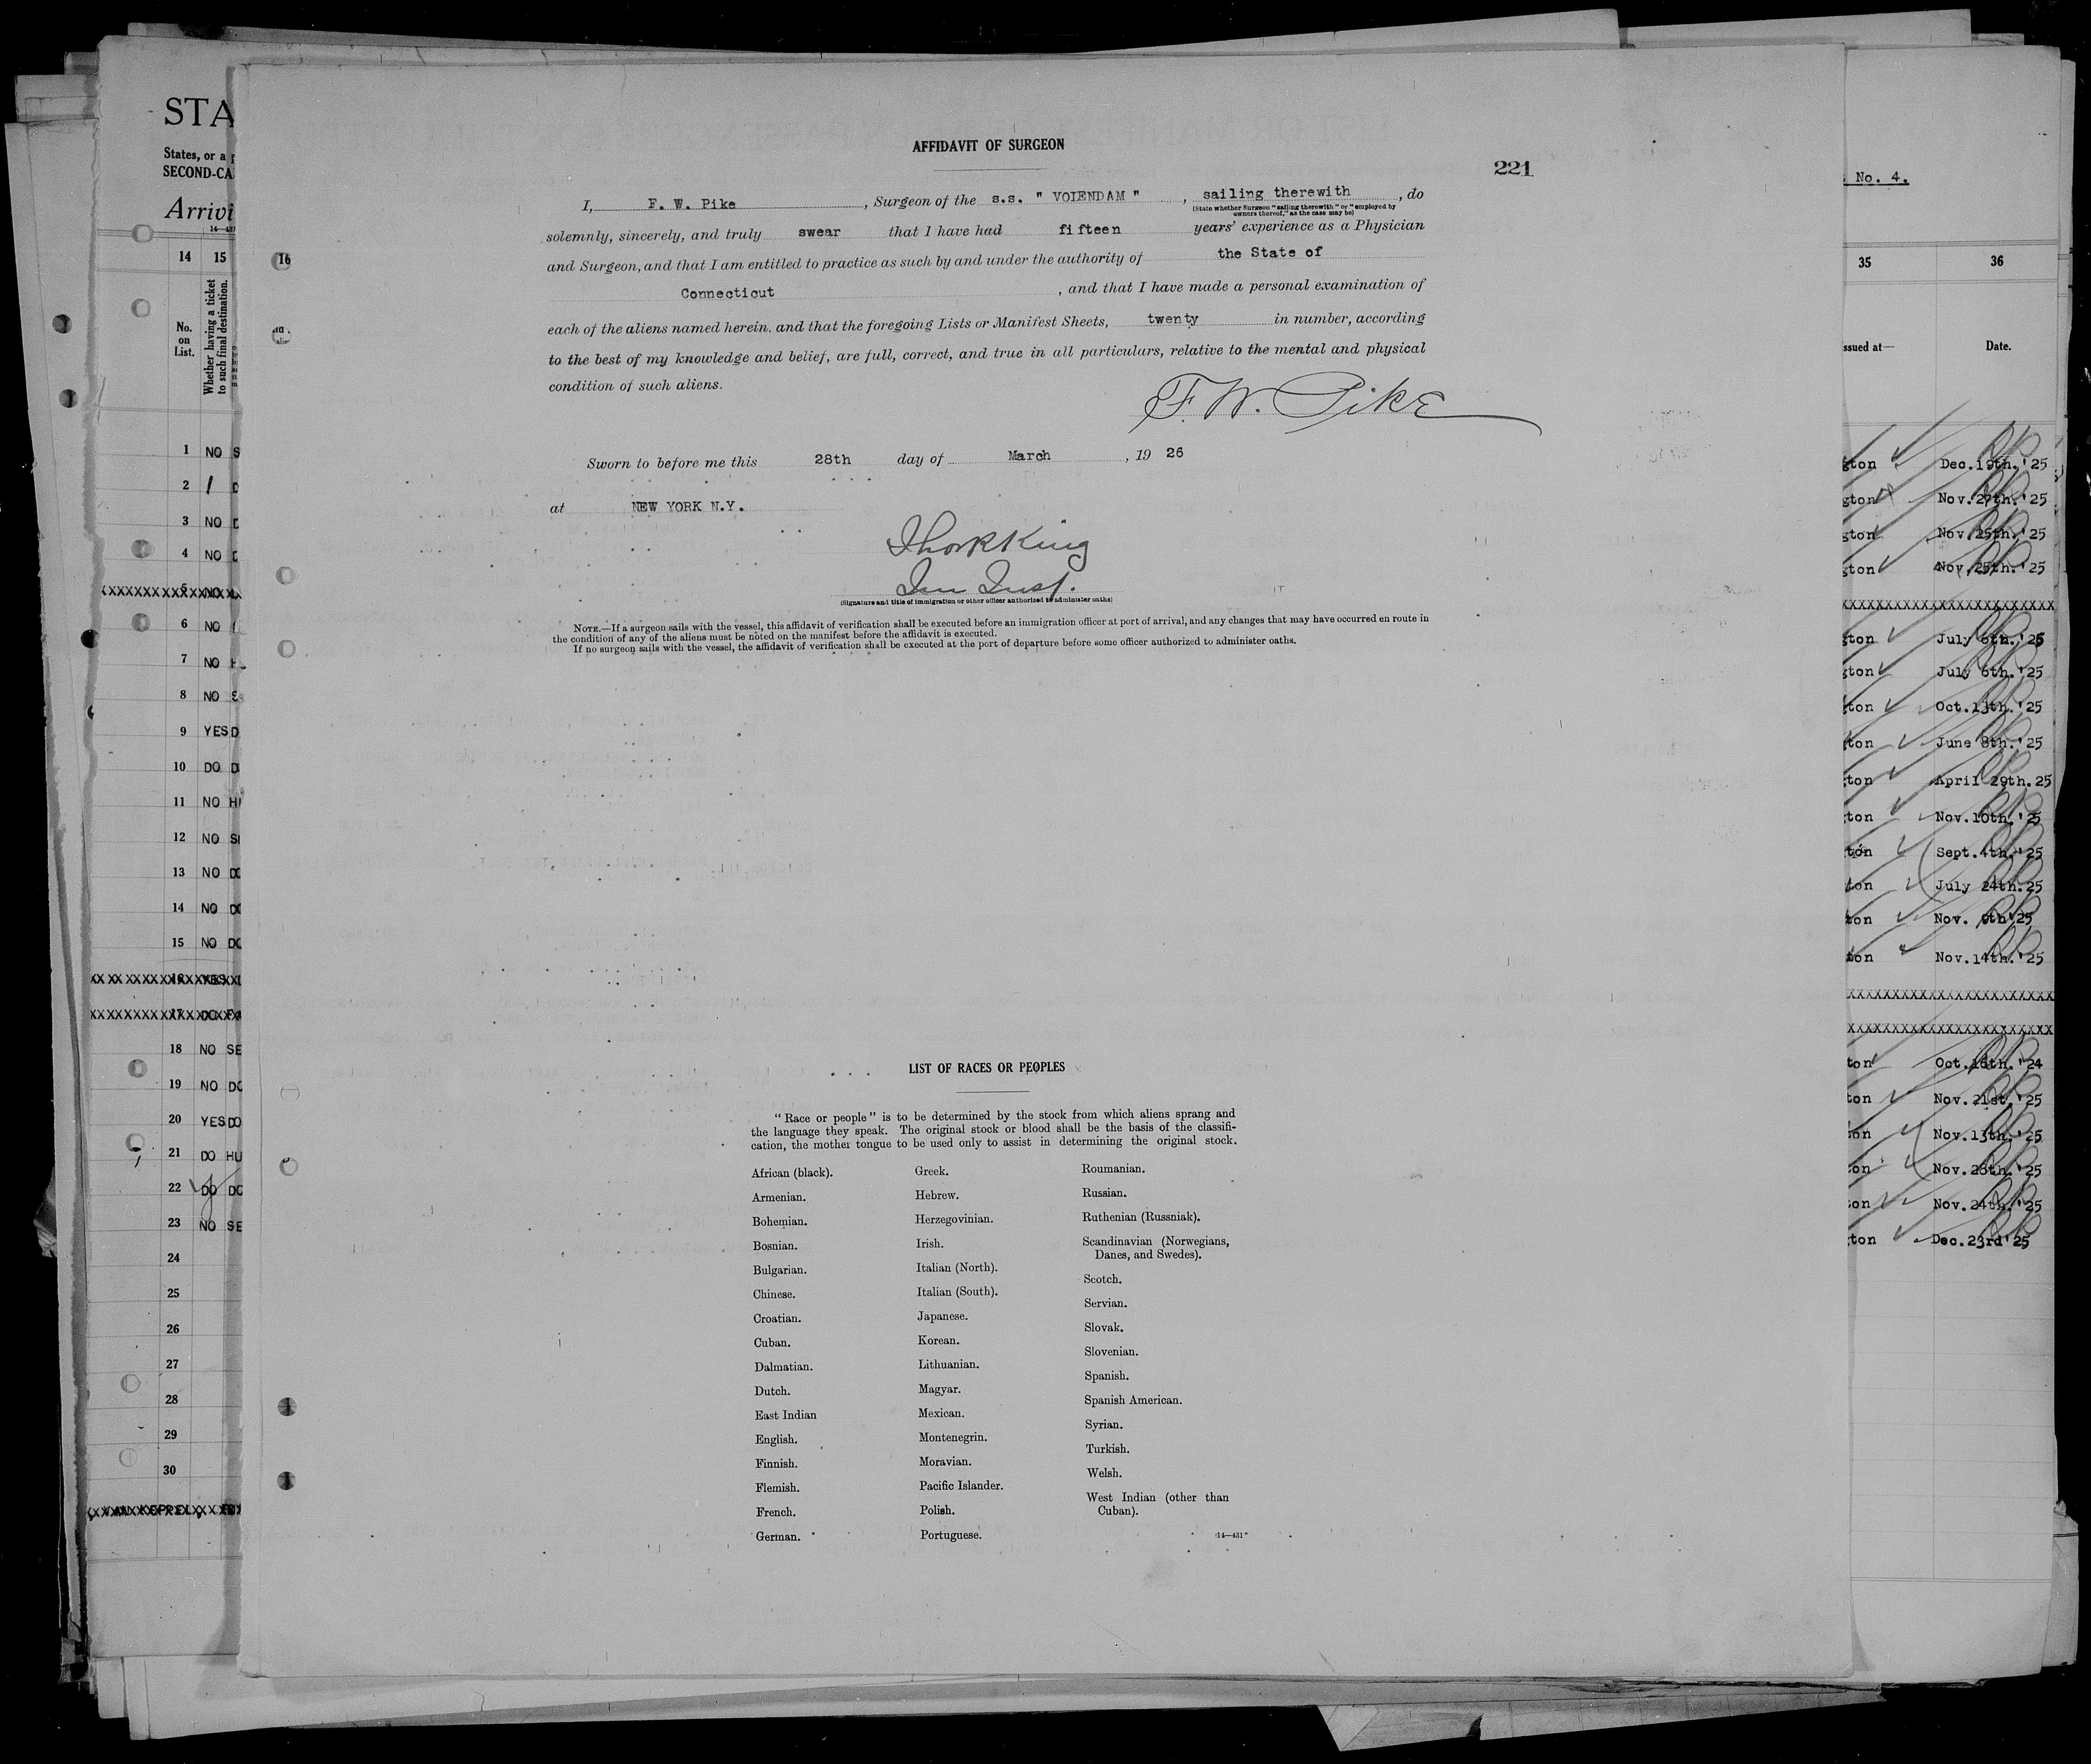 AFFIDAVIT OF SURGEON
221
I, F. W. Pike, Surgeon of the s.s. " VOIENDAM ", sailing therewith, do
(State whether Surgeon "sailing therewith" or "employed by
owners thereof," as the case may be)
solemnly, sincerely, and truly swear that I have had fifteen years' experience as a Physician
and Surgeon, and that I am entitled to practice as such by and under the authority of the State of
Connecticut, and that I have made a personal examination of
each of the aliens named herein, and that the foregoing Lists or Manifest Sheets, twenty in number, according
to the best of my knowledge and belief, are full, correct, and true in all particulars, relative to the mental and physical
condition of such aliens.
F. W. Pike
Sworn to before me this 28th day of March, 19 26
at NEW YORK N.Y.
King
Im Insp.
(Signature and title of immigration or other officer authorized to administer oaths)
NOTE.—If a surgeon sails with the vessel, this affidavit of verification shall be executed before an immigration officer at port of arrival, and any changes that may have occurred en route in
the condition of any of the aliens must be noted on the manifest before the affidavit is executed.
If no surgeon sails with the vessel, the affidavit of verification shall be executed at the port of departure before some officer authorized to administer oaths.
LIST OF RACES OR PEOPLES
"Race or people" is to be determined by the stock from which aliens sprang and
the language they speak. The original stock or blood shall be the basis of the classifi-
cation, the mother tongue to be used only to assist in determining the original stock.
African (black).
Armenian.
Bohemian.
Bosnian.
Bulgarian.
Chinese.
Croatian.
Cuban.
Dalmatian.
Dutch.
East Indian
English.
Finnish.
Flemish.
French.
German.
Greek.
Hebrew.
Herzegovinian.
Irish.
Italian (North).
Italian (South).
Japanese.
Korean.
Lithuanian.
Magyar.
Mexican.
Montenegrin.
Moravian.
Pacific Islander.
Polish.
Portuguese.
Roumanian.
Russian.
Ruthenian (Russniak).
Scandinavian (Norwegians,
Danes, and Swedes).
Scotch.
Servian.
Slovak.
Slovenian.
Spanish.
Spanish American.
Syrian.
Turkish.
Welsh.
West Indian (other than
Cuban).
14—431
STA
States, or a
SECOND-CA
Arrivi
14—431
14 15
16
No.
on
List.
Whether having a ticket
to such final destination.
1 NO S
2
3 NO D
4 NO D
5 NO
6 NO
7 NO H
8 NO S
9 YES D
10 DO D
11 NO H
12 NO S
13 NO DO
14 NO DO
15 NO DO
16 YES
17 DO
18 NO SE
19 NO DO
20 YES DO
21 DO HU
22 DO DO
23 NO SE
24
25
26
27
28
29
30
KEPPEL,
No. 4.
35 36
ssued at— Date.
gton Dec.19th.'25
gton Nov.27th.'25
gton Nov.25th.'25
gton Nov.25th.'25
gton July 6th.'25
gton July 6th.'25
ton Oct.13th.'25
ton June 8th.'25
ton April 29th.25
ton Nov.10th.'25
ton Sept.4th.'25
ton July 24th.25
ton Nov. 9th'25
ton Nov.14th.'25
ton Oct.16th.'24
ton Nov.21st.'25
ton Nov.13th.'25
on Nov.28th.'25
ton Nov.24th.'25
ton Dec.23rd'25